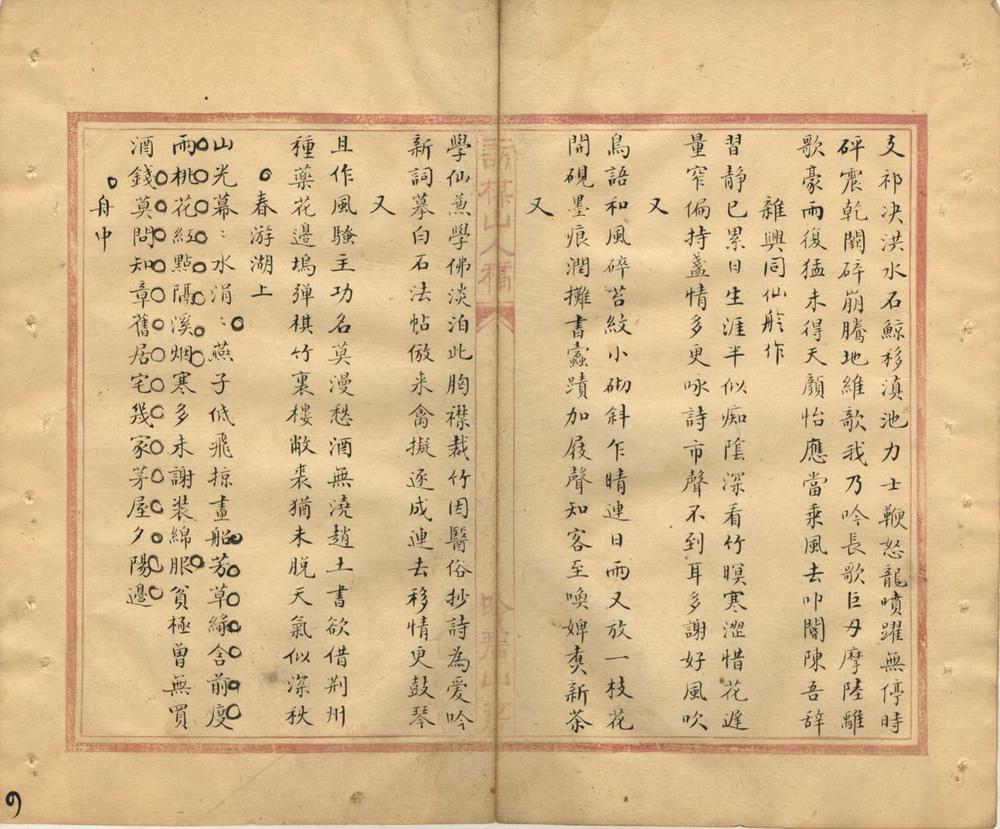 支祁决洪水石鯨移滇池力士鞭怒龍噴躍無停時
砰震乾闢碎崩騰地維歌我乃吟長歌巨丹摩陸離
歌豪雨復猛未得天顏怡應當乘風去叩閽陳吾辞
雜興同仙舲作
習静已累日生涯半似痴陰深看竹暝寒澀惜花遅
量窄偏持盞情多更咏詩市聲不到耳多謝好風吹
又
鳥語和風碎苔紋小砌斜乍晴連日雨又放一枝花
開硯墨痕潤攤書蠹蹟加屐聲知客至喚婢煑新茶
又
詩棋山人稿
吟碧山房
學仙蕉學佛淡泊此胸襟裁竹因醫俗抄詩為愛吟
新詞摹白石法帖倣来禽擬逐成連去移情更鼓琴
又
且作風騷主功名莫漫愁酒無澆趙土書欲借荆州
種藥花邊塢弹棋竹裏樓敝裘猶未脱天氣似深秋
春游湖上
山光幕〻水涓〻燕子低飛掠畫船芳草綠含前度
雨桃花紅點隔溪烟寒多未謝装綿服貧極曽無買
酒錢莫問知章舊居宅幾家茅屋夕陽邊
舟中